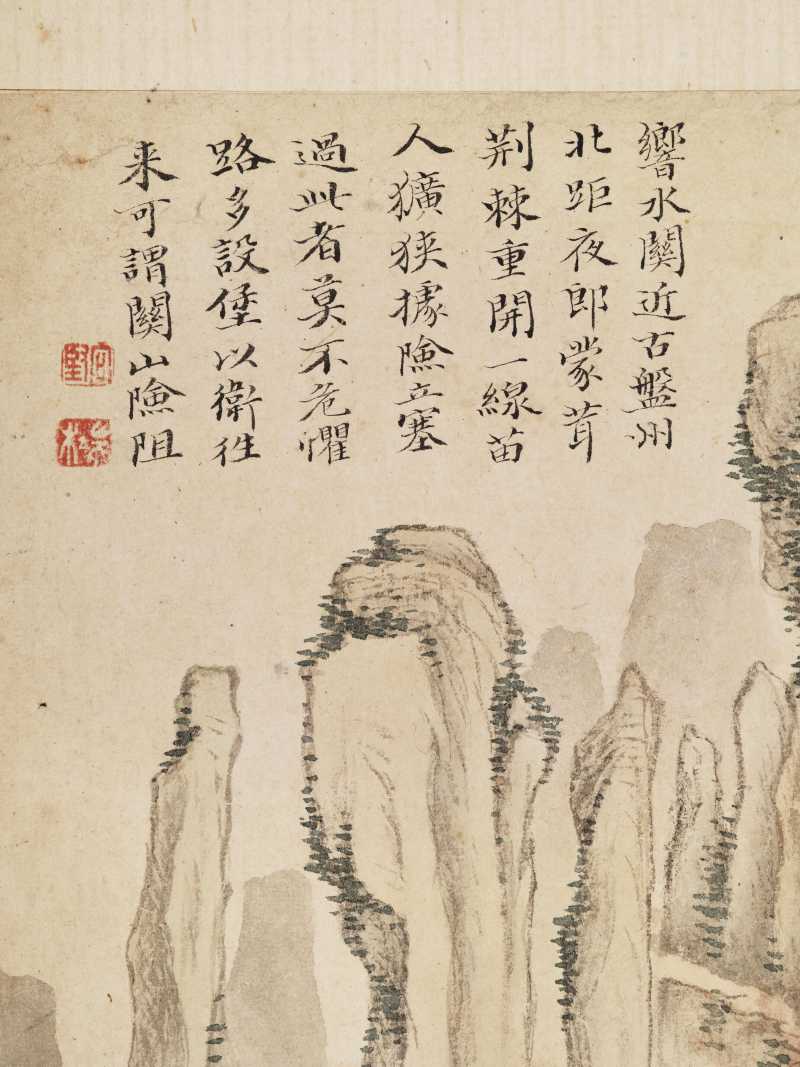 響水關近古盤州
北距夜郎蒙茸
荆棘重開一線苗
人獷狭據險立塞
過此者莫不危懼
路多設堡以衛往
来可謂關山險阻